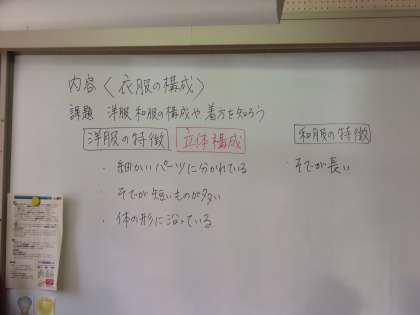 内容〈衣服の構成〉
課題 洋服和服の構成や着方を知ろう
洋服の特徴 立体構成 和服の特徴
・細かいパーツに分かれている ・そでが長い
・そでが短いものが多い
・体の形に沿っている